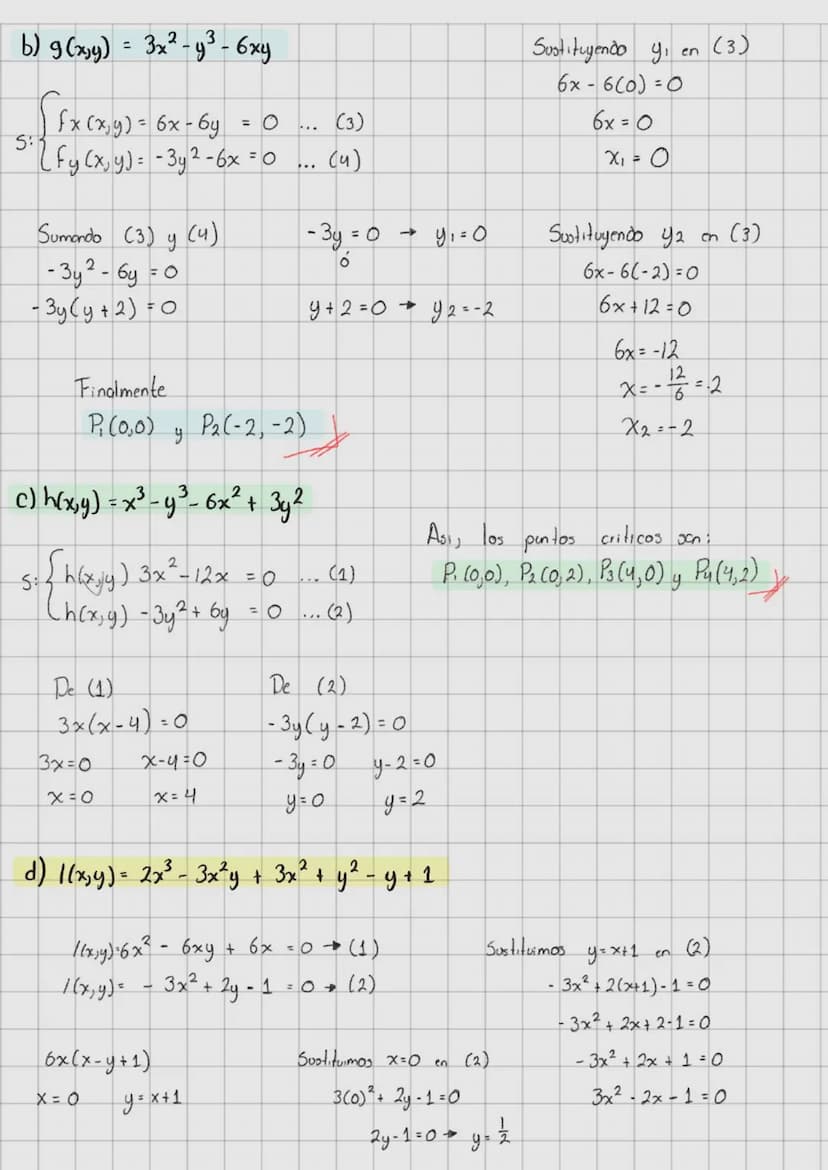 b) g(x,y) = 3x² - y³ - 6xy
S: { fx(x,y) = 6x - 6y = 0 ... (3)
fy(x,y) = -3y² - 6x = 0 ... (4)
Sumando (3) y (4)
-3y² - 6y = 0
-3y(y + 2) = 0
-3y = 0 → y₁ = 0
ó
y + 2 = 0 → y₂ = -2
Sustituyendo y₁ en (3)
6x - 6(0) = 0
6x = 0
x₁ = 0
Sustituyendo y₂ en (3)
6x - 6(-2) = 0
6x + 12 = 0
6x = -12
x = - 12/6 = -2
x₂ = -2
Finalmente
P₁(0,0) y P₂(-2, -2)
c) h(x,y) = x³ - y³ - 6x² + 3y²
S: { h(x,y) 3x² - 12x = 0 ... (1)
h(x,y) -3y² + 6y = 0 ... (2)
Así, los puntos criticos son:
P₁(0,0), P₂(0,2), P₃(4,0) y P₄(4,2)
De (1)
3x(x - 4) = 0
3x = 0 x - 4 = 0
x = 0 x = 4
De (2)
-3y(y - 2) = 0
-3y = 0 y - 2 = 0
y = 0 y = 2
d) l(x,y) = 2x³ - 3x²y + 3x² + y² - y + 1
l(x,y) = 6x² - 6xy + 6x = 0 → (1)
l(x,y) = - 3x² + 2y - 1 = 0 → (2)
6x(x - y + 1)
x = 0 y = x+1
Sustituimos x=0 en (2)
3(0)² + 2y - 1 = 0
2y - 1 = 0 → y = 1/2
Sustituimos y = x+1 en (2)
- 3x² + 2(x+1) - 1 = 0
- 3x² + 2x + 2 - 1 = 0
- 3x² + 2x + 1 = 0
3x² - 2x - 1 = 0